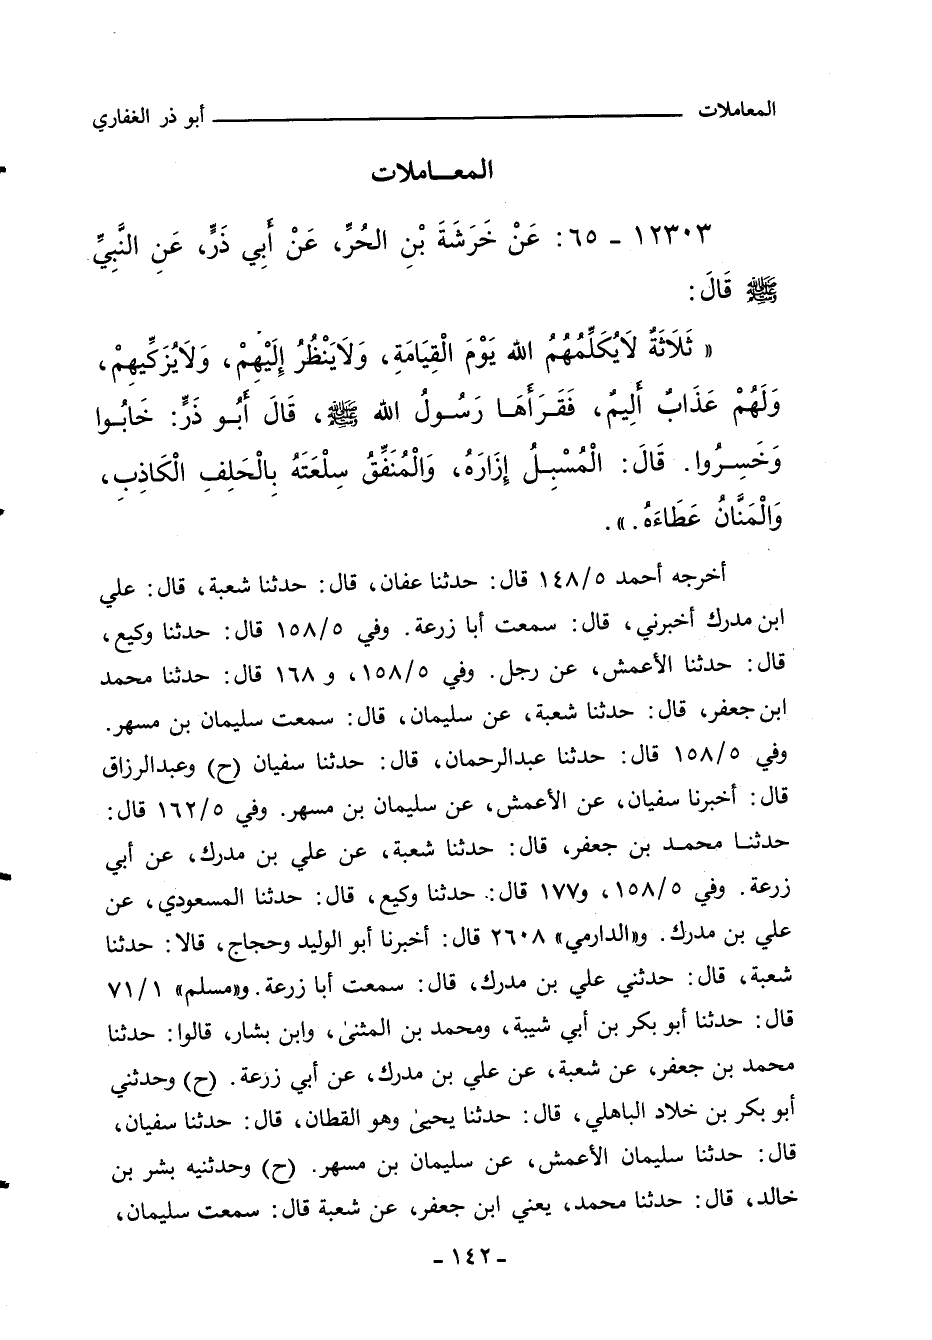 المعاملات ــــــــــــــــــــ أبو ذر الغفاري
المعـــاملات
١٢٣٠٣ ـ ٦٥: عَنْ خَرَشَةَ بْنِ الحُرِّ، عَنْ أَبِي ذَرٍّ، عَنِ النَّبِيِّ
ﷺ قَالَ:
« ثَلَاثَةٌ لَايُكَلِّمُهُمُ الله يَوْمَ الْقِيَامَةِ، وَلَايَنْظُرُ إِلَيْهِمْ، وَلَايُزَكِّيهِمْ،
وَلَهُمْ عَذَابٌ أَلِيمٌ، فَقَرَأَهَا رَسُولُ الله ﷺ، قَالَ أَبُو ذَرٍّ: خَابُوا
وَخَسِرُوا. قَالَ: الْمُسْبِلُ إِزَارَهُ، وَالْمُنَفِّقُ سِلْعَتَهُ بِالْحَلِفِ الْكَاذِبِ،
وَالْمَنَّانُ عَطَاءَهُ.».
أخرجه أحمد ١٤٨/٥ قال: حدثنا عفان، قال: حدثنا شعبة، قال: علي
ابن مدرك أخبرني، قال: سمعت أبا زرعة. وفي ١٥٨/٥ قال: حدثنا وكيع،
قال: حدثنا الأعمش، عن رجل. وفي ١٥٨/٥، و ١٦٨ قال: حدثنا محمد
ابن جعفر، قال: حدثنا شعبة، عن سليمان، قال: سمعت سليمان بن مسهر.
وفي ١٥٨/٥ قال: حدثنا عبدالرحمان، قال: حدثنا سفيان (ح) وعبدالرزاق
قال: أخبرنا سفيان، عن الأعمش، عن سليمان بن مسهر. وفي ١٦٢/٥ قال:
حدثنا محمد بن جعفر، قال: حدثنا شعبة، عن علي بن مدرك، عن أبي
زرعة. وفي ١٥٨/٥، و١٧٧ قال: حدثنا وكيع، قال: حدثنا المسعودي، عن
علي بن مدرك. و«الدارمي» ٢٦٠٨ قال: أخبرنا أبو الوليد وحجاج، قالا: حدثنا
شعبة، قال: حدثني علي بن مدرك، قال: سمعت أبا زرعة. و«مسلم» ٧١/١
قال: حدثنا أبو بكر بن أبي شيبة، ومحمد بن المثنىٰ، وابن بشار، قالوا: حدثنا
محمد بن جعفر، عن شعبة، عن علي بن مدرك، عن أبي زرعة. (ح) وحدثني
أبو بكر بن خلاد الباهلي، قال: حدثنا يحيىٰ وهو القطان، قال: حدثنا سفيان،
قال: حدثنا سليمان الأعمش، عن سليمان بن مسهر. (ح) وحدثنيه بشر بن
خالد، قال: حدثنا محمد، يعني ابن جعفر، عن شعبة قال: سمعت سليمان،
ـ ١٤٢ ـ